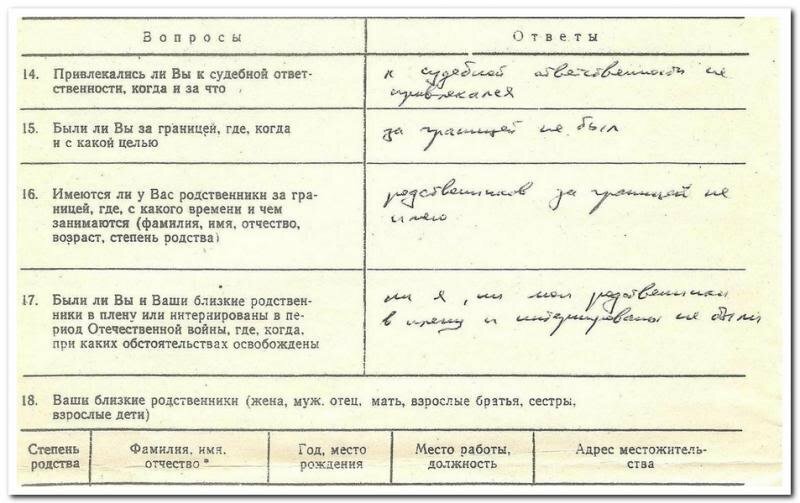 Вопросы
Ответы
14. Привлекались ли Вы к судебной ответ-
ственности, когда и за что
к судебной ответственности не
привлекался
15. Были ли Вы за границей, где, когда
и с какой целью
за границей не был
16. Имеются ли у Вас родственники за гра-
ницей, где, с какого времени и чем
занимаются (фамилия, имя, отчество,
возраст, степень родства)
родственников за границей не
имею
17. Были ли Вы и Ваши близкие родствен-
ники в плену или интернированы в пе-
риод Отечественной войны, где, когда,
при каких обстоятельствах освобождены
ни я, ни мои родственники
в плену и интернированы не были
18. Ваши близкие родственники (жена, муж, отец, мать, взрослые братья, сестры,
взрослые дети)
Степень
родства
Фамилия, имя,
отчество*
Год, место
рождения
Место работы,
должность
Адрес местожитель-
ства